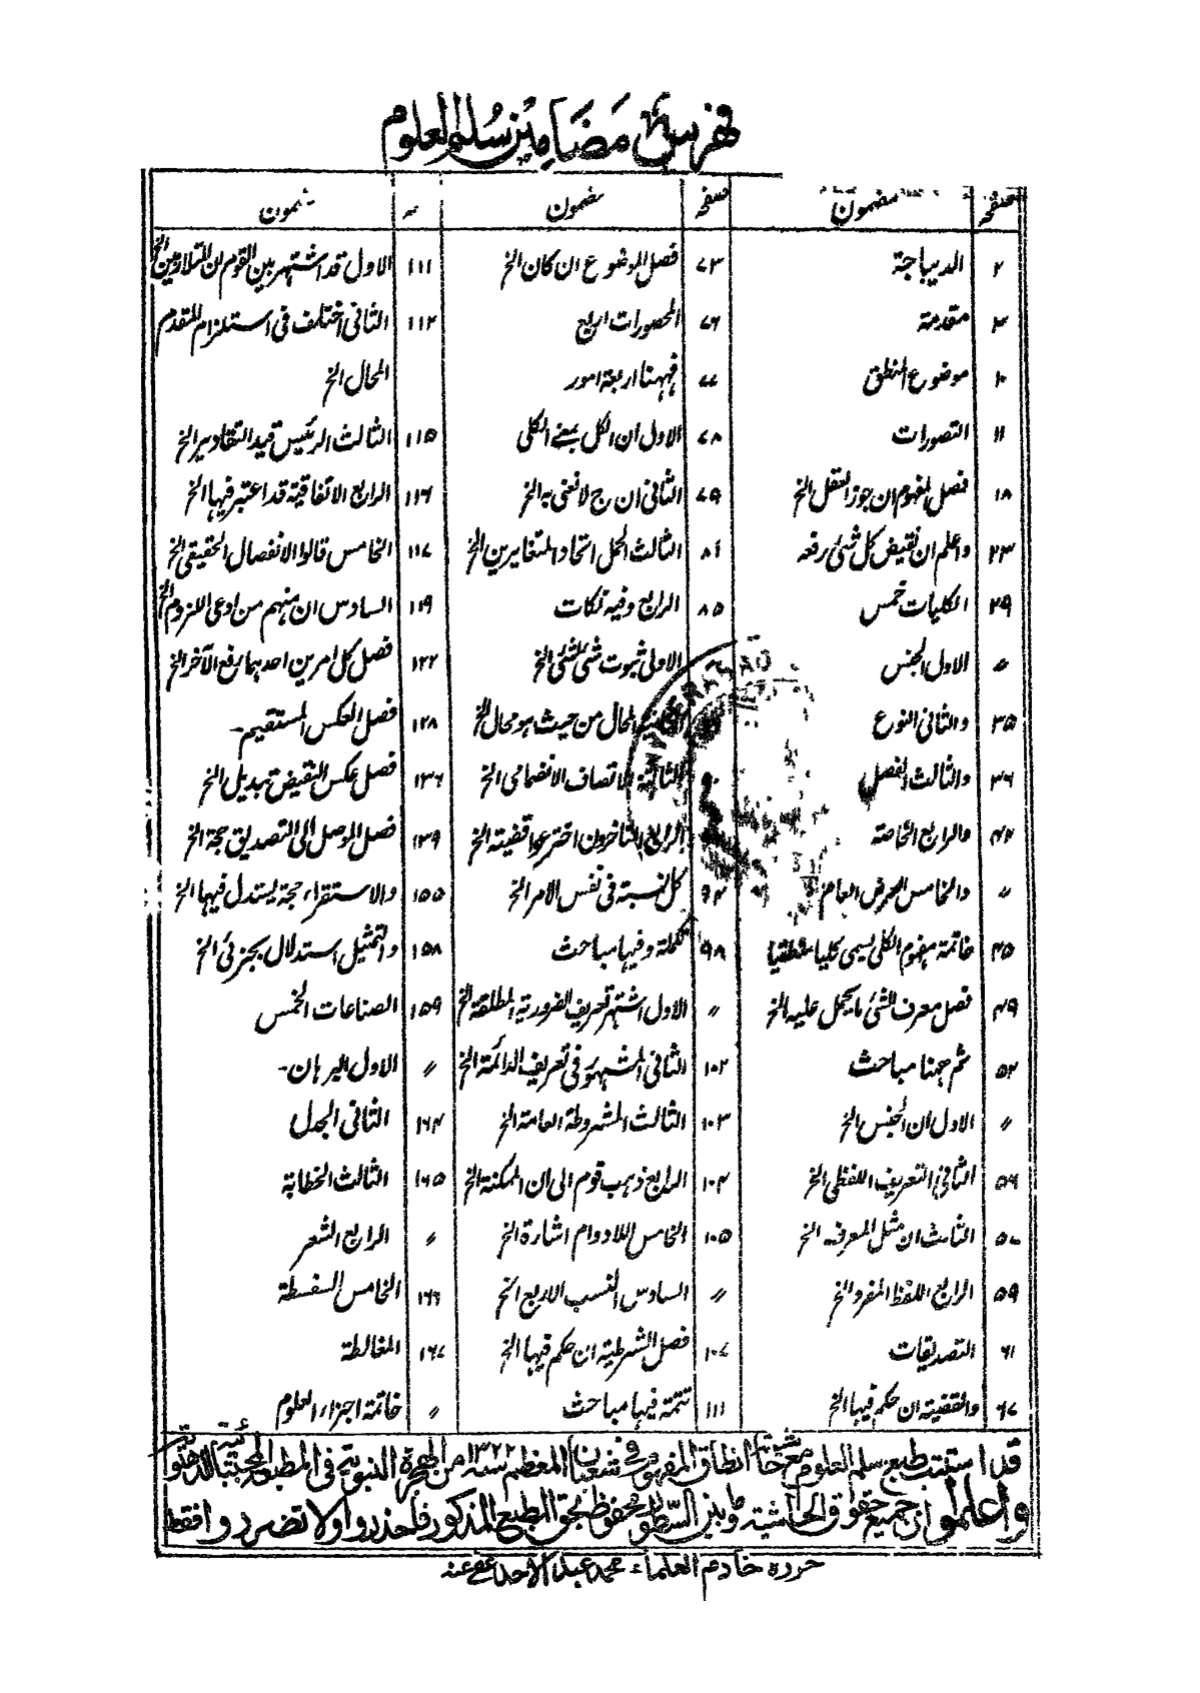 فهرست مضامین سلم العلوم
صفحہ مضمون صفحہ مضمون مضمون
۲ الدیباجة ۷۳ فصل الموضوع ان کان الخ ۱۱۱ الاول قد اشتهر بین القوم ان المتلازمین الخ
۳ مقدمة ۷۶ المحصورات اربع ۱۱۲ الثانی اختلف فی استلزام المقدم
۱۰ موضوع المنطق ۷۷ فههنا اربعة امور المحال الخ
۱۱ التصورات ۷۸ الاول ان الکل بمعنے الکلی ۱۱۵ الثالث الرئیس قید التقادیر الخ
۱۸ فصل المفهوم ان جوز العقل الخ ۷۹ الثانی ان ج لا نعنی به الخ ۱۱۶ الرابع الاتفاقیة قد اعتبر فیها الخ
۲۳ واعلم ان نقیض کل شئ رفعه ۸۱ الثالث الحمل اتحاد المتغایرین الخ ۱۱۷ الخامس قالوا الانفصال الحقیقی الخ
۲۹ الکلیات خمس ۸۵ الرابع وفیه نکات ۱۱۹ السادس ان منهم من ادعی اللزوم الخ
〃 الاول الجنس الاولی ثبوت شئ لشئ الخ ۱۲۲ فصل کل امرین احدهما رفع الآخر الخ
۳۵ والثانی النوع المحال من حیث هو محال الخ ۱۲۸ فصل العکس المستقیم-
۳۶ والثالث الفصل ۹۰ الثالثة الاتصاف الانضمامی الخ ۱۳۶ فصل عکس النقیض تبدیل الخ
۴۲ والرابع الخاصة الرابع المتاخرون اخترعوا قضیة الخ ۱۳۹ فصل الموصل الی التصدیق حجة الخ
〃 والخامس العرض العام ۹۴ کل نسبة فی نفس الامر الخ ۱۵۵ والاستقراء حجة یستدل فیها الخ
۴۵ خاتمة مفهوم الکلی یسمی کلیا منطقیا ۹۸ تکملة وفیها مباحث ۱۵۸ والتمثیل استدلال بجزئی الخ
۴۹ فصل معرف الشئ ما یحمل علیه الخ 〃 الاول اشتهر تعریف الضروریة المطلقة الخ ۱۵۹ الصناعات الخمس
۵۲ ثم ههنا مباحث ۱۰۲ الثانی المشهور فی تعریف الدائمة الخ 〃 الاول البرهان-
〃 الاول ان الجنس الخ ۱۰۳ الثالث المشروطة العامة الخ ۱۶۴ الثانی الجدل
۵۶ الثانی التعریف اللفظی الخ ۱۰۴ الرابع ذهب قوم الی ان الممکنة الخ ۱۶۵ الثالث الخطابة
۵۷ الثالث ان مثل المعرف الخ ۱۰۵ الخامس اللادوام اشارة الخ 〃 الرابع الشعر
۵۹ الرابع اللفظ المفرد الخ 〃 السادس النسب الاربع الخ ۱۶۶ الخامس السفسطة
۶۱ التصدیقات ۱۰۷ فصل الشرطیة ان حکم فیها الخ ۱۶۷ المغالطة
۶۷ والقضیة ان حکم فیها الخ ۱۱۱ تتمة فیها مباحث 〃 خاتمة اجزاء العلوم
قد استتب طبع سلم العلوم مع حاشیتها انطاق المفهوم فی شعبان المعظم سنه ۱۳۲۲ من الهجرة النبویة فی المطبع المجتبائیة الدهلویة
واعلموا ان جمیع حقوق الحاشیة وبین السطور محفوظ بحق الطبع المذکور فلحذروا ولا تضرروا فقط
حررہ خادم العلماء محمد عبد الاحد عفی عنه